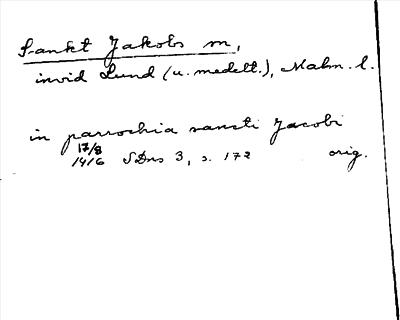 Sankt Jakobs sn,
invid Lund (u. medelt.), Malm. l.
in parrochia sancti Jacobi
17/8
1416 SDns 3, s. 172 orig.